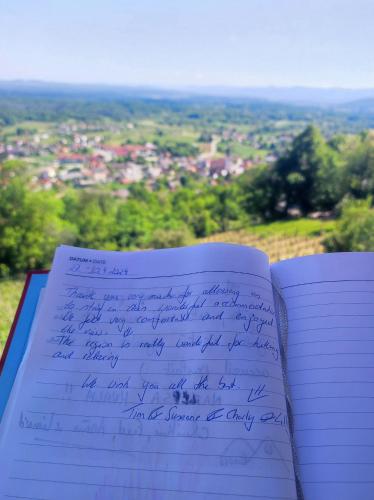 DATUM • DATE
Thank you very much for allowing us
to stay in this wonderful accomodation
We felt very comfortable and enjoyed
the view.
The region is really wonderful for hiking
and relaxing
We wish you all the best
Tim & Susanne & Charly